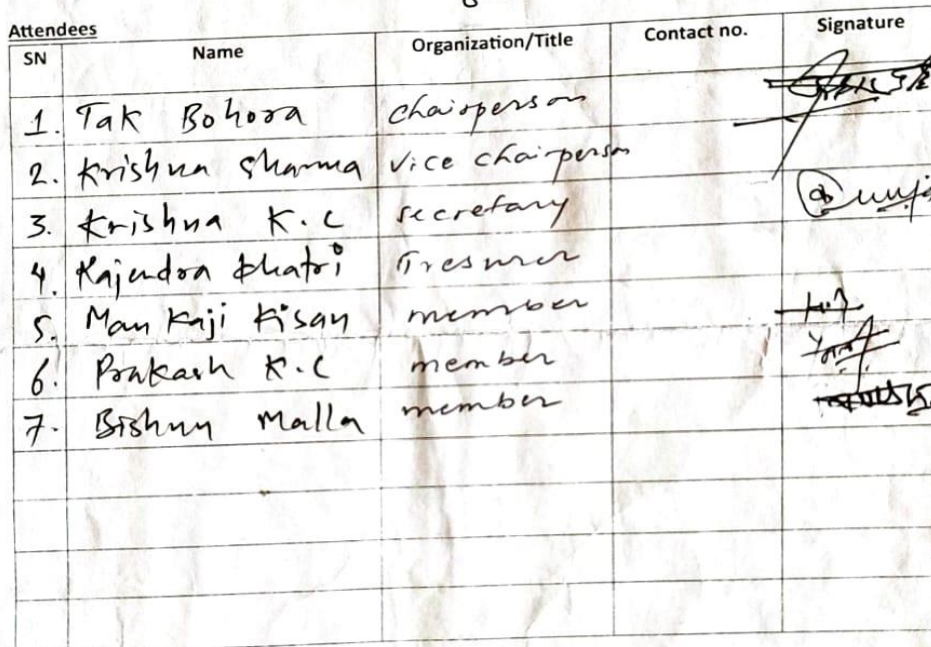 Attendees
SN Name Organization/Title Contact no. Signature
1. Tak Bohora chairperson
2. Krishna Sharma vice chairperson
3. Krishna K.C secretary
4. Rajendra khatri Tresurer
5. Man Kaji Kisan member
6. Prakash K.C member
7. Bishnu Malla member